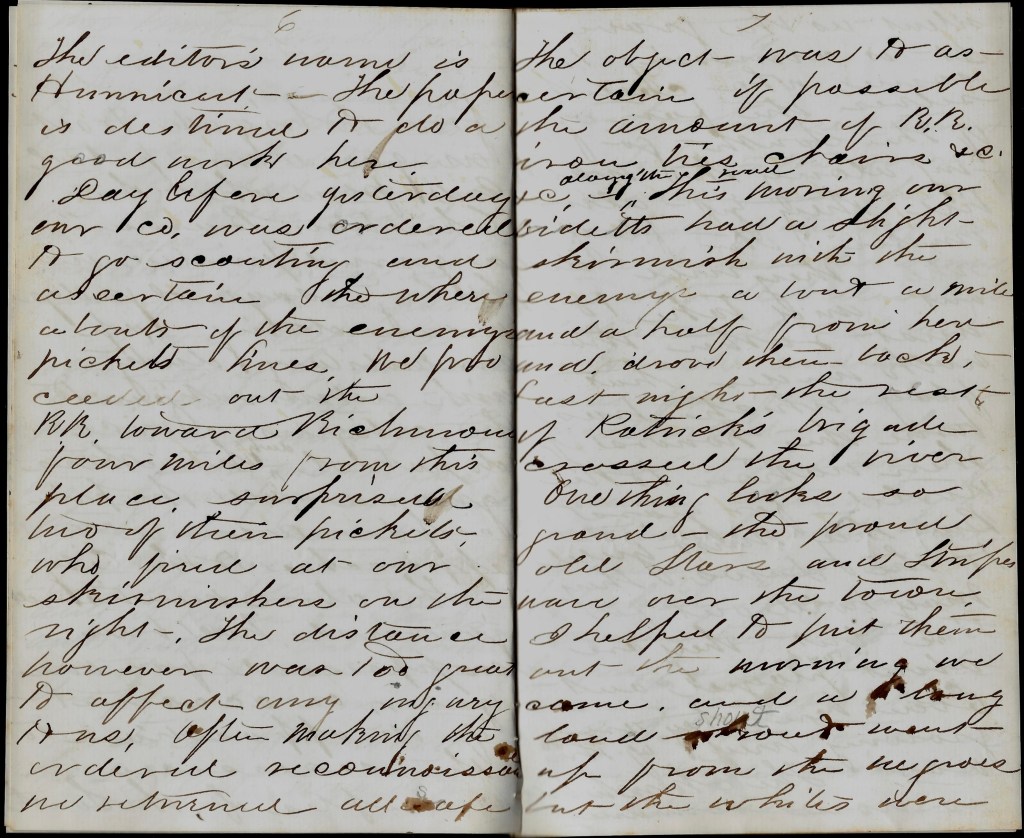 6
The editor's name is
Hunnicut — The paper
is destined to do a
good work here.
Day before yesterday
our co. was ordered
to go scouting and
ascertain the where
abouts of the enemys
pickets lines, We pro
ceeded out the
R.R. toward Richmond
four miles from this
place, surprised
two of their pickets,
who fired at our
skirmishers on the
right. The distance
however was too great
to affect any injury
to us, After making the
ordered reconnoissan
we returned all safe
7
The object was to as-
certain if possible
the amount of R.R.
iron, ties chairs &c.
along the road
&c This morning our
videtts had a slight
skirmish with the
enemys a bout a mile
and a half from here
and drove them back,
Last night the rest
of Patrick's brigade
crossed the river
One thing looks so
grand — the proud
old Stars and Stripes
wave over the town,
I helped to put them
out the morning we
came, and a long
shout
loud shout went
up from the negroes
but the whites were